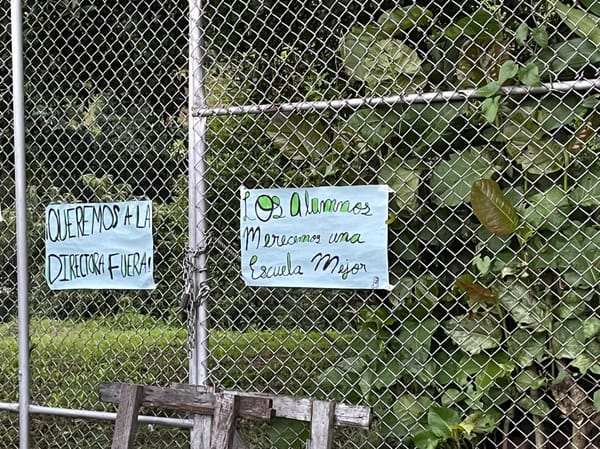 QUEREMOS A LA
DIRECTORA FUERA!
LOS Alumnos
Merecemos una
Escuela Mejor